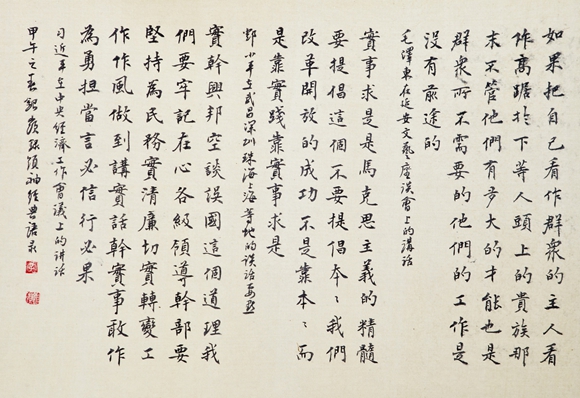 如果把自己看作群衆的主人看
作高踞扵下等人頭上的貴族那
末不管他們有多大的才能也是
群衆所不需要的他們的工作是
没有前途的
毛澤東在延安文藝座談會上的講話
實事求是是馬克思主義的精髓
要提倡這個不要提倡本〻我們
改革開放的成功不是靠本〻而
是靠實踐靠實事求是
鄧小平在武昌深圳珠海上海等地的談話要點
實幹興邦空談誤國這個道理我
們要牢記在心各級領導幹部要
堅持為民務實清廉切實轉變工
作作風做到講實話幹實事敢作
為勇担當言必信行必果
习近平在中央经濟工作會議上的讲话
甲午之春 録 領袖經典语录